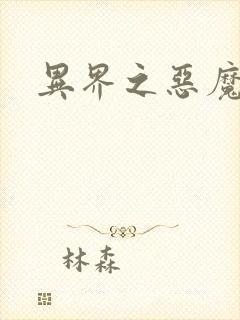 異界之惡魔
林森